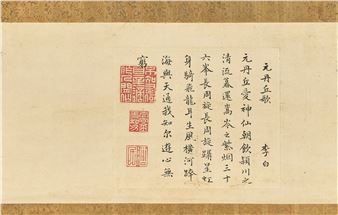 元丹丘歌 李白
元丹丘愛神仙朝飲潁川之
清流暮還嵩岑之紫烟三十
六峯長周旋長周旋躡星虹
身騎飛龍耳生風橫河跨
海與天通我知尔遊心無
窮